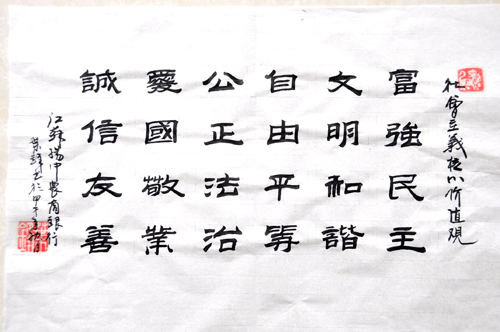 社會主義核心价值观
富強民主
文明和諧
自由平等
公正法治
愛國敬業
誠信友善
江蘇揚中農商銀行
书於甲午年